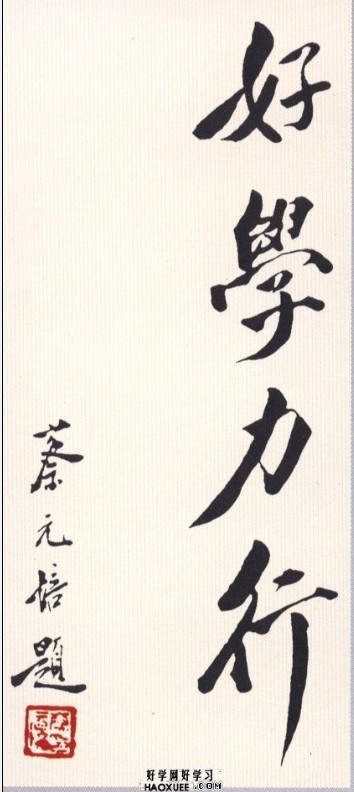 好學力行
蔡元培題
好学网好学习
HAOXUEE .COM